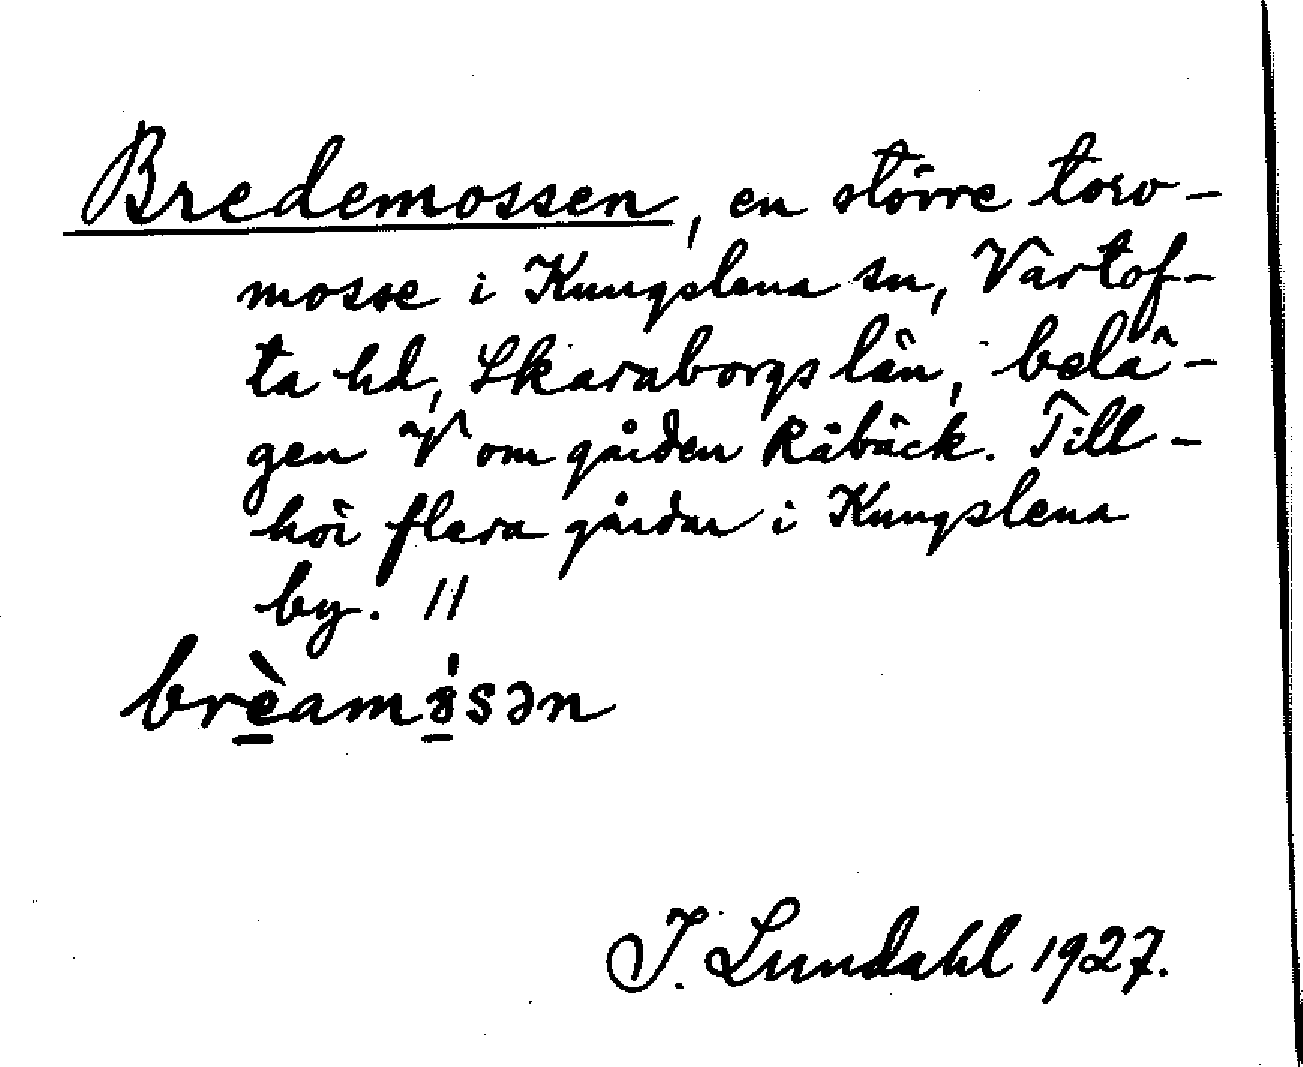 Bredemossen, en större torv-
mosse i Kungslena sn, Vartof-
ta hd, Skaraborgs län, belä-
gen V om gården Råbäck. Till-
hör flera gårdar i Kungslena
by. //
brèamɵ́sən
J. Lundahl 1927.